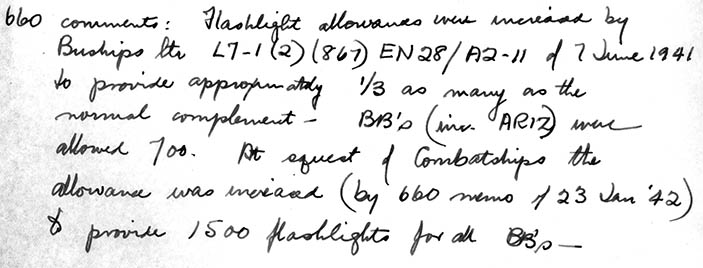 660 comments: Flashlight allowances were increased by
Buships ltr L7-1(2)(867) EN28/A2-11 of 7 June 1941
to provide approximately 1/3 as many as the
normal complement - BB's (inc. ARIZ) were
allowed 700. At request of Combatships the
allowance was increased (by 660 memo of 23 Jan '42)
to provide 1500 flashlights for all BB's -